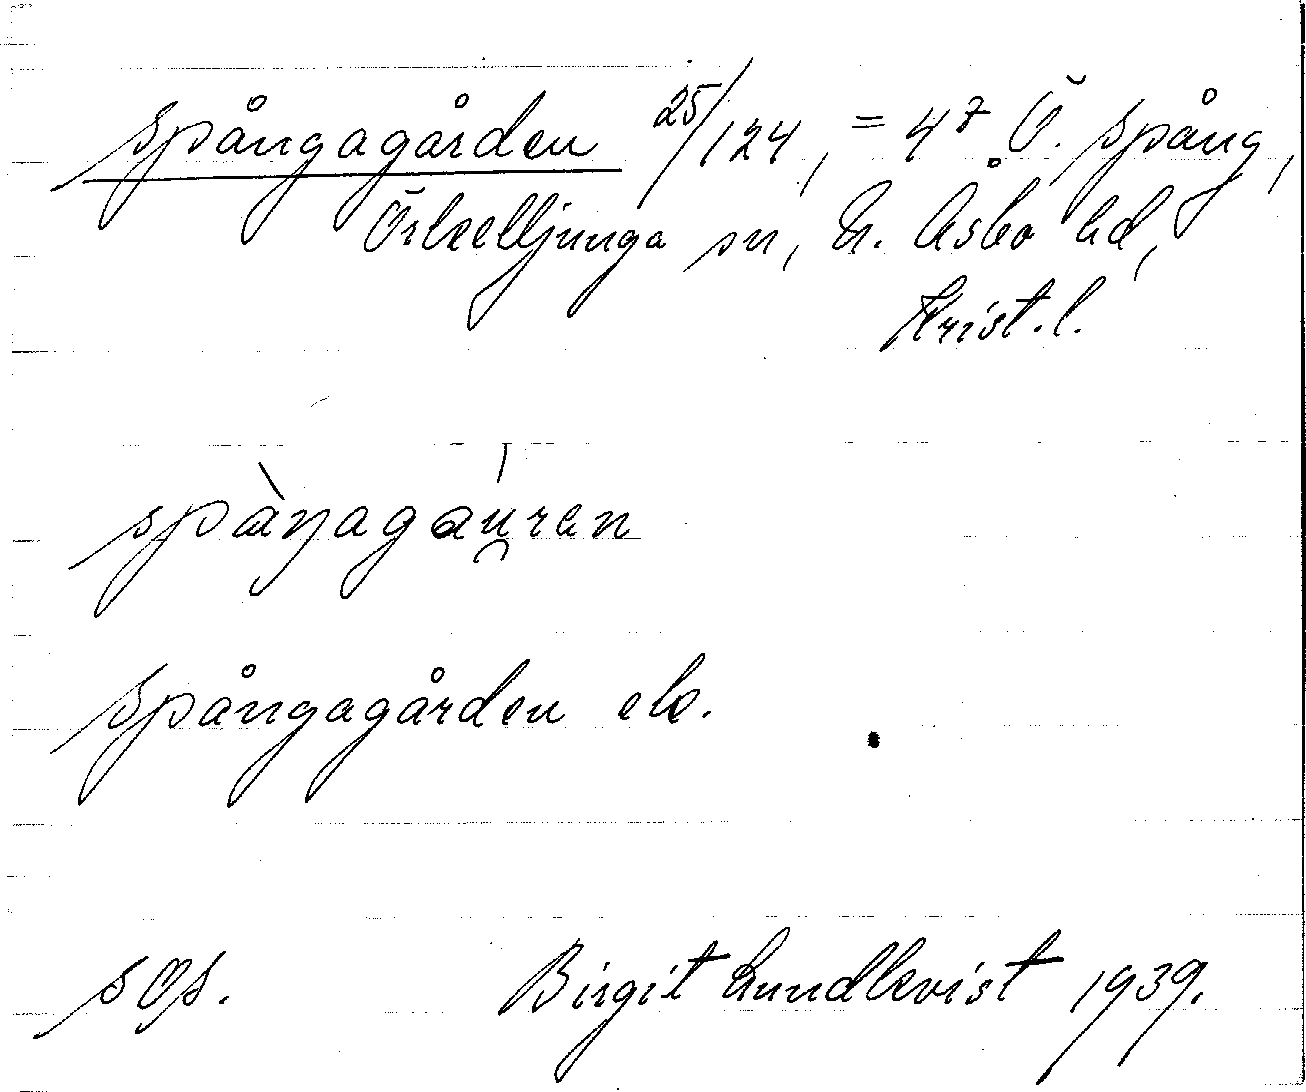 Spångagården 25/124, = 4⁷ Ö. Spång,
Örkelljunga sn, N. Åsbo hd,
Krist.l.
spàŋagáu̯ran
Spångagården ek.
sos. Birgit Lundkvist 1939.